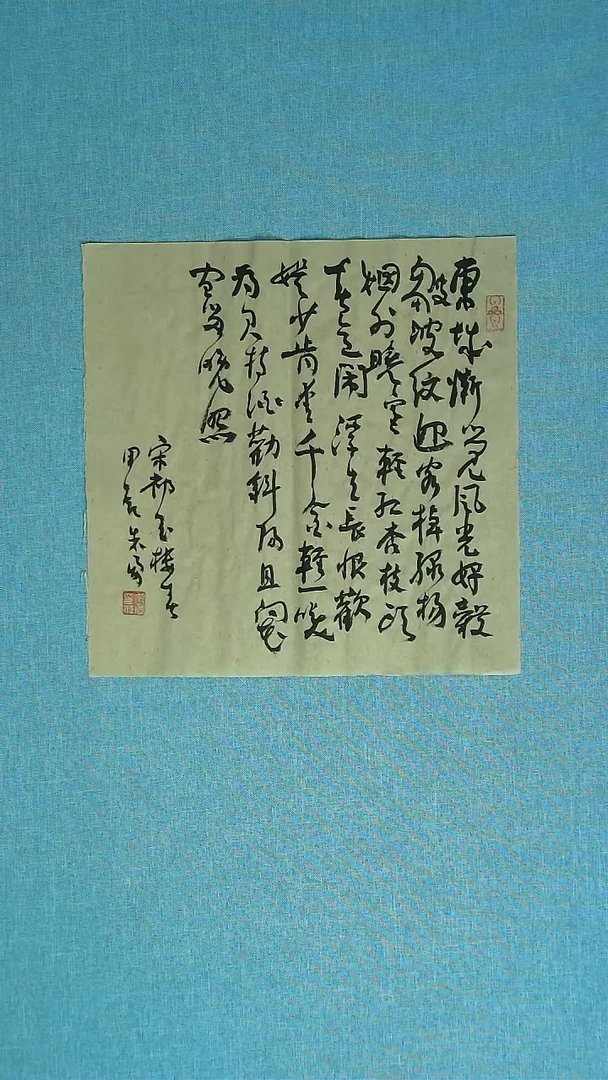 東城漸覺風光好縠
皺波紋迎客棹綠楊
烟外曉寒輕紅杏枝頭
春意闹浮生長恨歡
娱少肯愛千金輕一笑
为君持酒勸斜阳且向花
间留晚照
宋祁玉楼春
甲辰朱